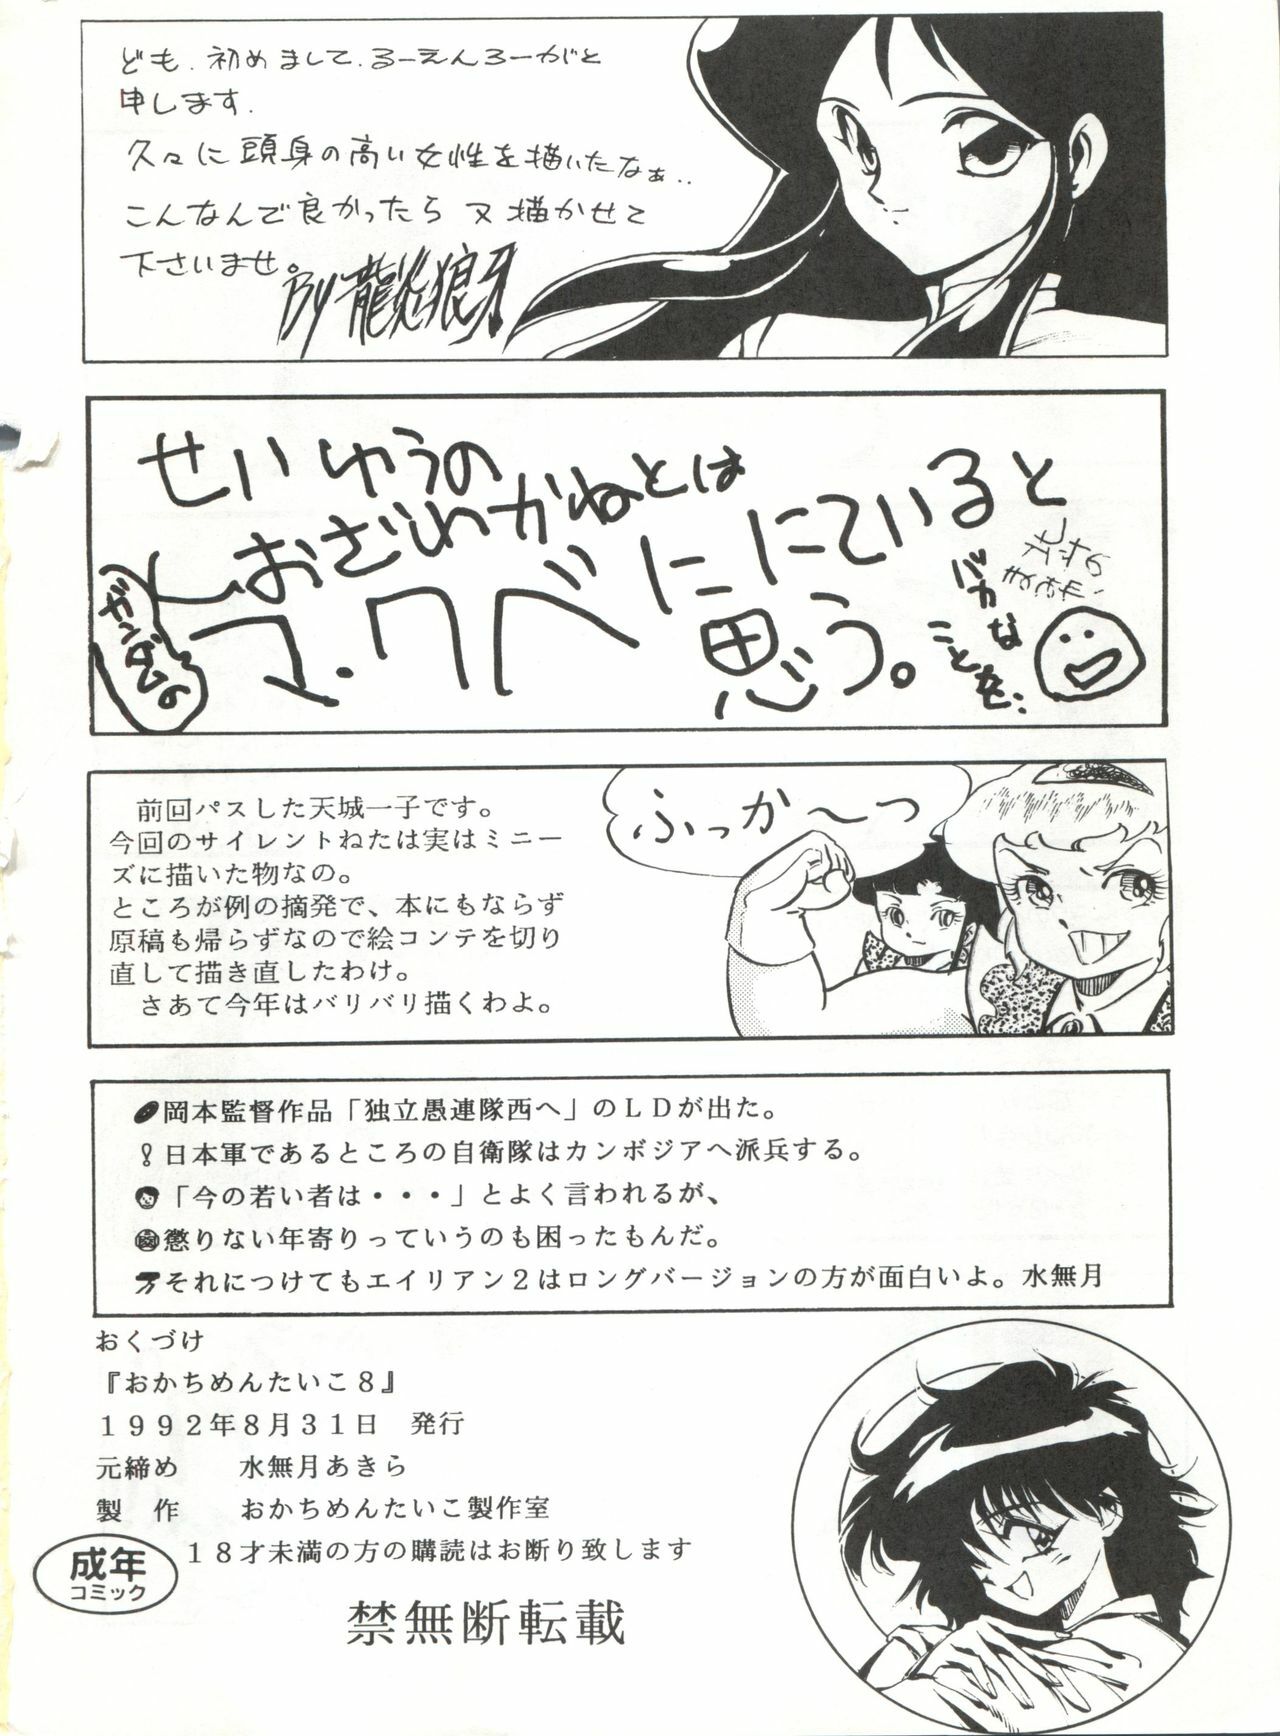 ども.初めまして.るーえんろーがと
申します.
久々に頭身の高い女性を描いたなぁ..
こんなんで良かったら又描かせて
下さいませ。
By 龍炎狼牙
せいゆうの
しおざわかねとは
ガンダムの
マ・クベににていると
思う。
バカな
ことを:
ふっか〜つ
前回パスした天城一子です。
今回のサイレントねたは実はミニー
ズに描いた物なの。
ところが例の摘発で、本にもならず
原稿も帰らずなので絵コンテを切り
直して描き直したわけ。
さあて今年はバリバリ描くわよ。
岡本監督作品「独立愚連隊西へ」のLDが出た。
!日本軍であるところの自衛隊はカンボジアへ派兵する。
「今の若い者は・・・」とよく言われるが、
懲りない年寄りっていうのも困ったもんだ。
それにつけてもエイリアン2はロングバージョンの方が面白いよ。水無月
おくづけ
『おかちめんたいこ8』
1992年8月31日 発行
元締め 水無月あきら
製 作 おかちめんたいこ製作室
成年
コミック
18才未満の方の購読はお断り致します
禁無断転載